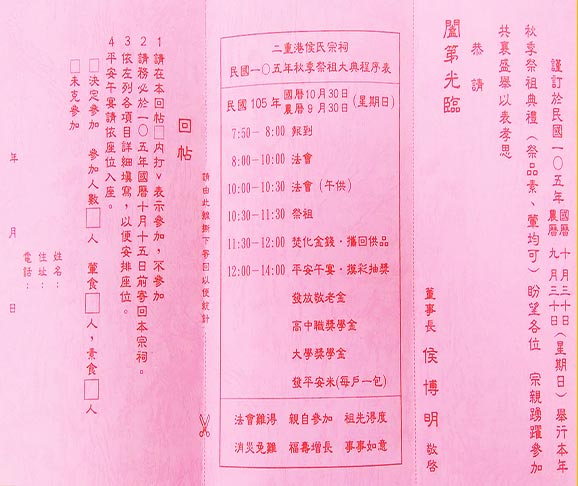 謹訂於民國一○五年 國曆 十月三十日 農曆 九月三十日 (星期日) 舉行本年
秋季祭祖典禮 (祭品素、葷均可) 盼望各位 宗親踴躍參加
共襄盛舉以表孝思
恭請
闔第光臨
董事長 侯博明 敬啓
二重港侯氏宗祠
民國一○五年秋季祭祖大典程序表
民國105年 國曆10月30日 農曆9月30日 (星期日)
7:50- 8:00 報到
8:00-10:00 法會
10:00-10:30 法會 (午供)
10:30-11:30 祭祖
11:30-12:00 焚化金錢‧攜回供品
12:00-14:00 平安午宴‧摸彩抽獎
發放敬老金
高中職獎學金
大學獎學金
發平安米(每戶一包)
法會難得 親自參加 祖先得度
消災免難 福壽增長 事事如意
請由此線撕下寄回以便統計
回帖
1 請在本回帖□內打ˇ表示參加，不參加
2 請務必於一○五年國曆十月十五日前寄回本宗祠。
3 依左列各項目詳細填寫，以便安排座位。
4 平安午宴請依座位入座。
□決定參加 參加人數□人 葷食□人，素食□人
□未克參加
姓名：
住址：
電話：
年 月 日